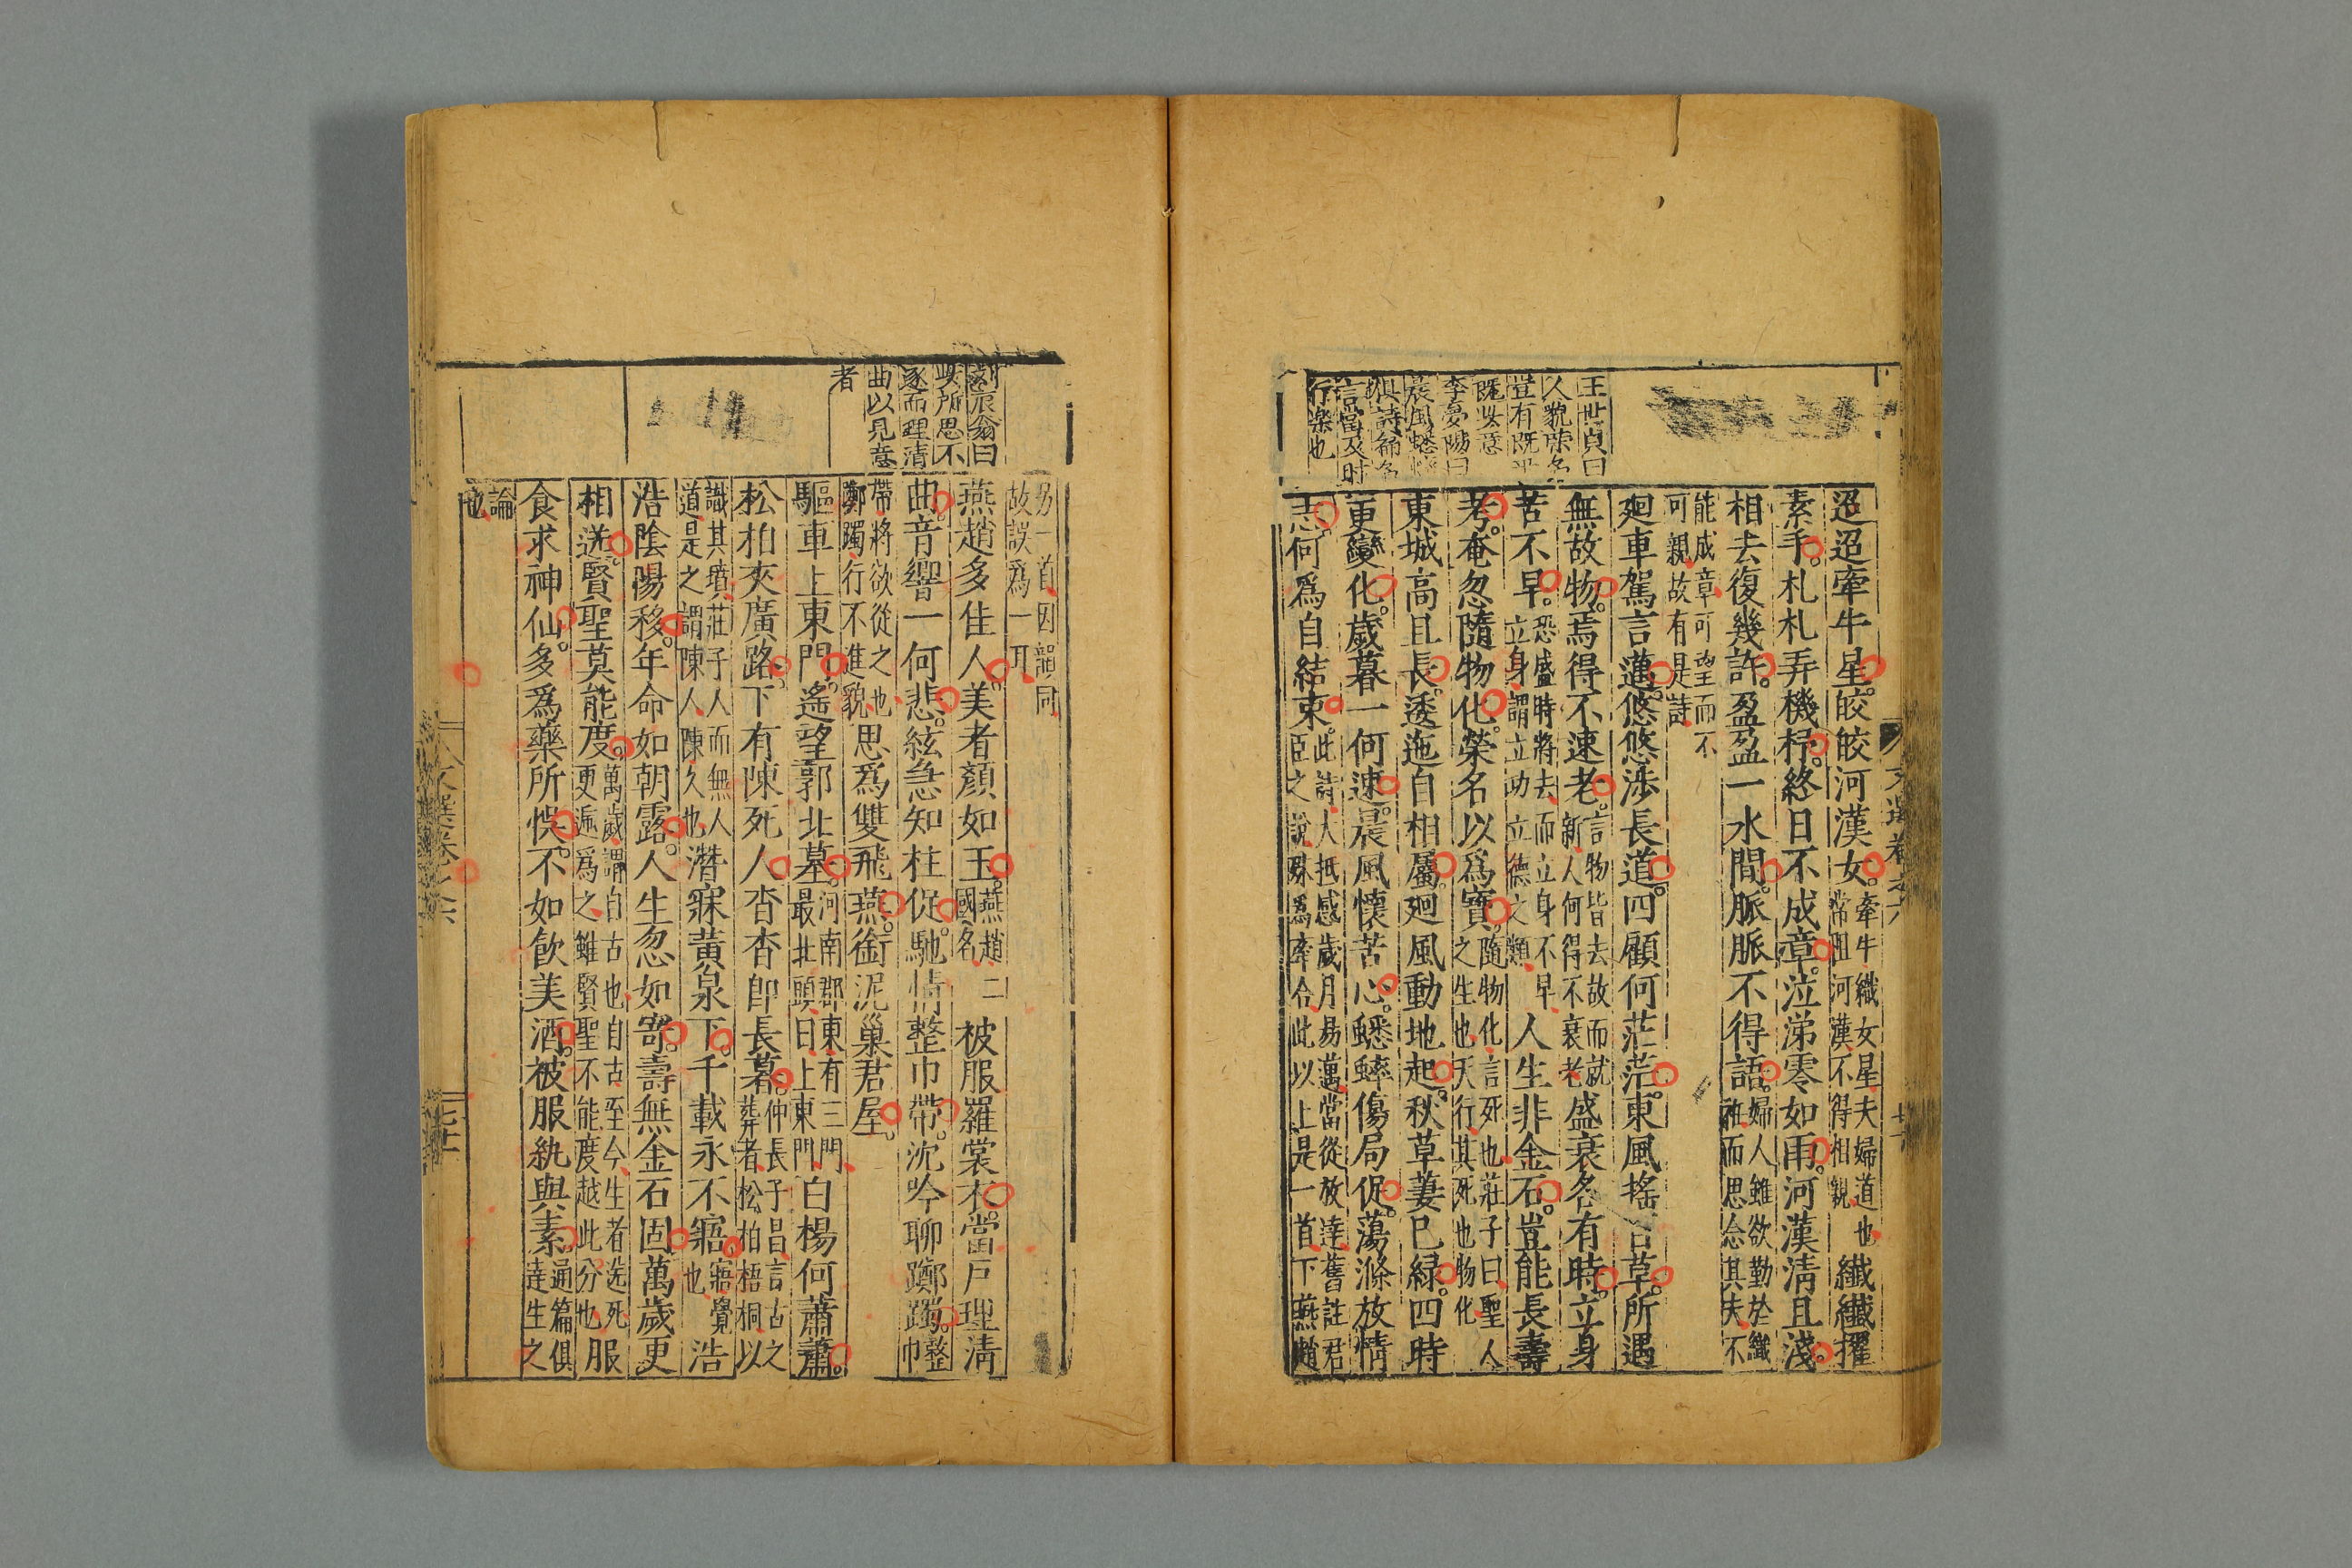 王世貞曰
人貌榮名
豈有既
既此意
李夢陽曰
晨風蟋
俱詩篇名
言當及时
行樂也
迢迢牽牛星皎皎河漢女牽牛織女星夫婦道也常阻河漢不得相親纖纖擢
素手札札弄機杼終日不成章泣涕零如雨河漢清且淺
相去復幾許盈盈一水間脈脈不得語婦人雖欲勤於織衽而思念其夫不
能成章可望而不可親故有是詩
廻車駕言邁悠悠涉長道四顧何茫茫東風搖百草所遇
無故物焉得不速老言物皆去故而就新人何得不衰老盛衰各有時立身
苦不早恐盛時將去而立身不早立身謂立功立德之類人生非金石豈能長壽
考奄忽隨物化榮名以爲寶隨物化言死也莊子曰聖人之生也天行其死也物化
東城高且長逶迤自相屬廻風動地起秋草萋已緑四時
更變化歲暮一何速晨風懷苦心蟋蟀傷局促蕩滌放情
志何爲自結束此詩人抵感歲月易邁當從放達舊註君臣之說殊爲牽合此以上是一首下燕趙
文選卷之六
劉辰翁曰
此所思不
遂而理清
曲以見意
者
另一首因韻同故誤爲一耳
燕趙多佳人美者顏如玉燕趙二國名被服羅裳衣當戶理清
曲音響一何悲絃急知柱促馳情整巾帶沈吟聊躑躅整巾
帶將欲從之也躑躅行不進貌思爲雙飛燕銜泥巢君屋
驅車上東門遙望郭北墓河南郡東有三門最北頭曰上東門白楊何蕭蕭
松柏夾廣路下有陳死人杳杳即長暮仲長子昌言古之葬者松柏梧桐以
識其墳莊子人而無人道是之謂陳人陳久也潛寐黃泉下千載永不寤寤覺也浩
浩陰陽移年命如朝露人生忽如寄壽無金石固萬歲更
相送賢聖莫能度萬歲謂自古也自古至今生者送死更遞爲之雖賢聖不能度越此分也服
食求神仙多爲藥所悞不如飲美酒被服紈與素通篇俱達生之
論也
文選卷之六